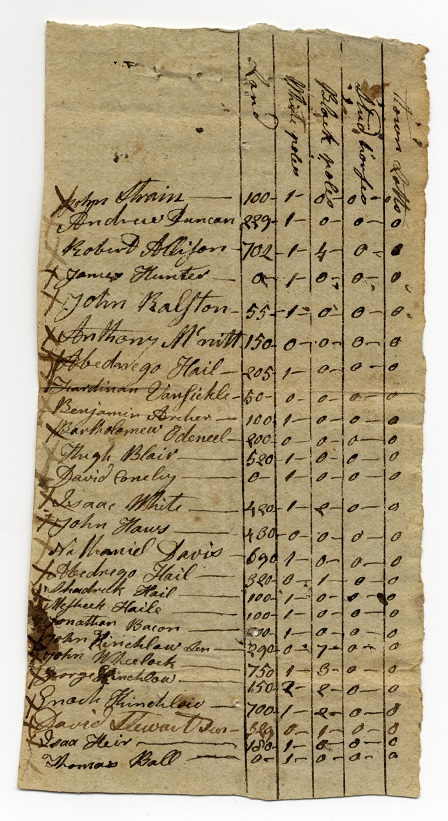 Land White poles Black poles Stud horses Town Lotts
John Strain 100 - 1 - 0 - 0 - 0
Andrew Duncan 229 - 1 - 0 - 0 - 0
Robert Allison - 702 - 1 - 4 - 0 - 0
James Hunter - 0 - 1 - 0 - 0 - 0
John Ralston - 55 - 1 - 0 - 0 - 0
Anthony McNitt 150 - 0 - 0 - 0 - 0
Abednego Hail - 205 - 1 - 0 - 0 - 0
Vansickle - 50 - 0 - 0 - 0 - 0
Benjamin Archer - 100 - 1 - 0 - 0 - 0
Bartholomew Odeneel - 200 - 0 - 0 - 0 - 0
Hugh Blair - 520 - 1 - 0 - 0 - 0
David - 0 - 1 - 0 - 0 - 0
Isaac White - 1 - 2 - 0 - 0
John Haws 430 - 0 - 0 - 0 - 0
Nathaniel Davis - 690 - 1 - 0 - 0 - 0
Abednego Hail - 320 - 0 - 1 - 0 - 0
Shadrick Hail - 100 - 1 - 0 - 0 - 0
Mesheck Haile - 100 - 1 - 0 - 0 - 0
Jonathan Bacon - 1 - 0 - 0 - 0
John Hinchlow Sen - 290 - 0 - 7 - 0 - 0
John Wheelock 750 - 1 - 3 - 0 - 0
George Hinchlow - 150 - 2 - 2 - 0 - 0
Enock Hinchlow - 700 - 1 - 2 - 0 - 0
David Stewart - 0 - 1 - 0 - 0
Isaa Heir - 180 - 1 - 0 - 0 - 0
Thomas Ball - 0 - 1 - 0 - 0 - 0